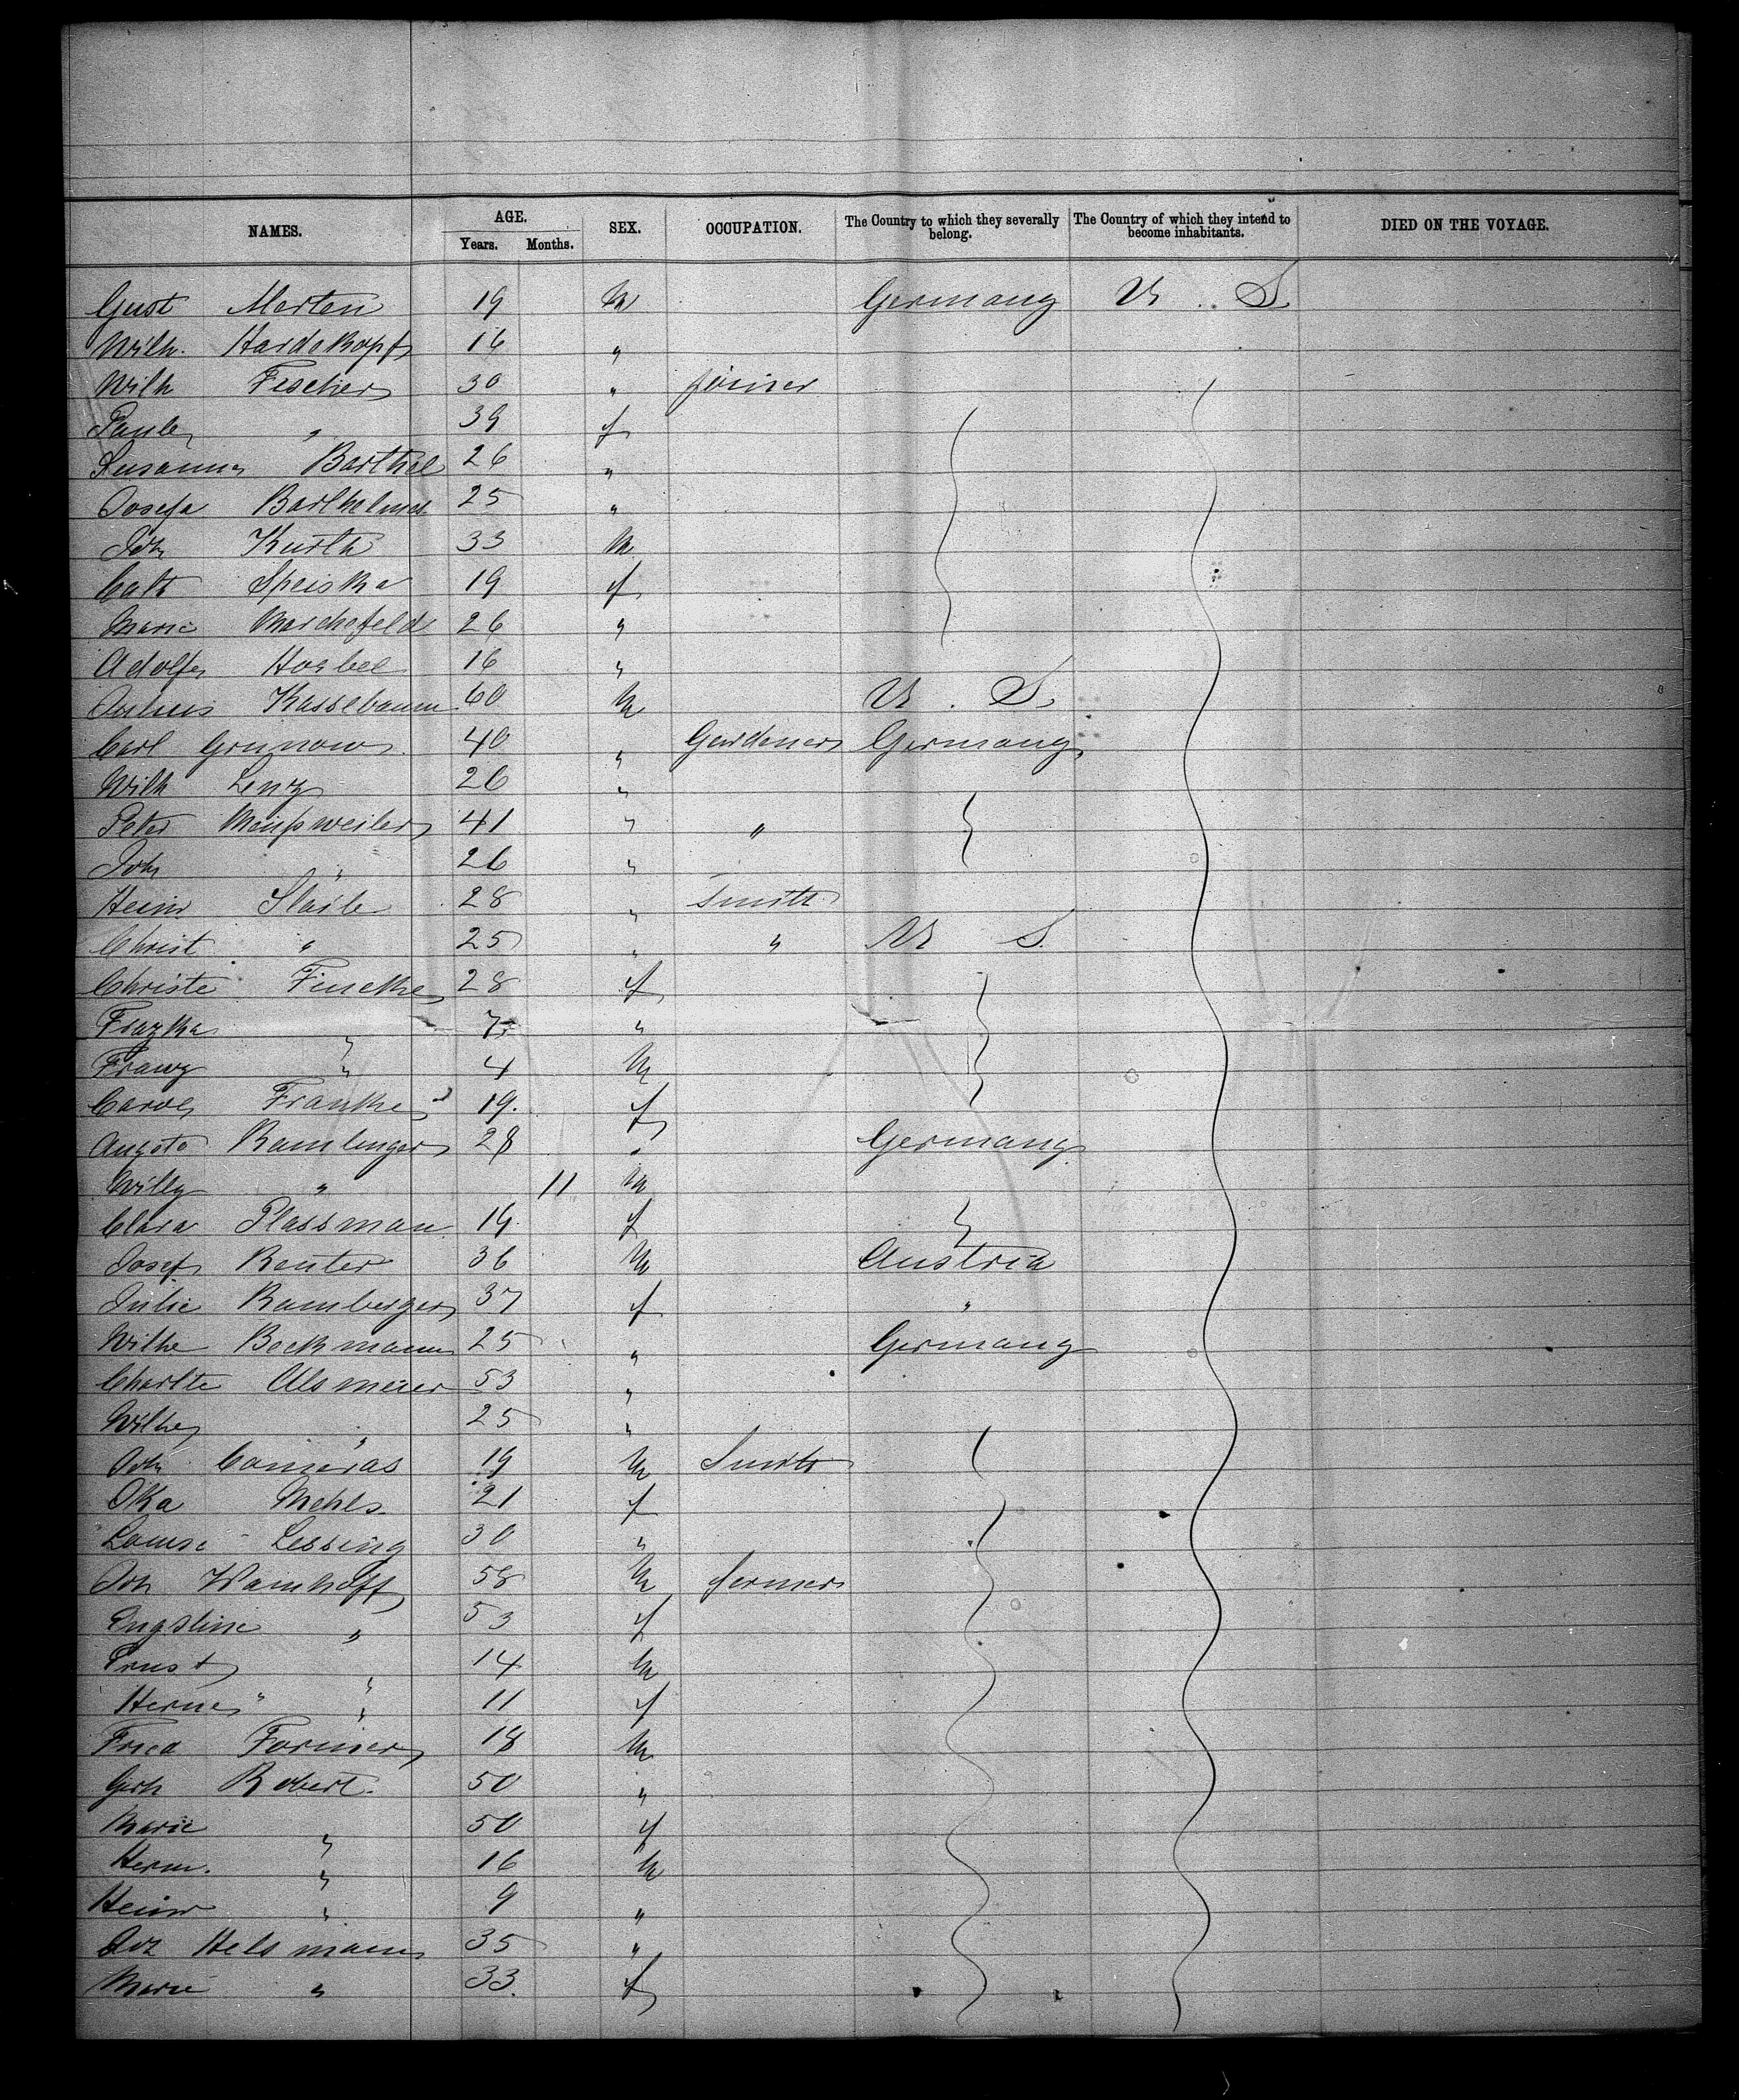 NAMES. AGE. Years. Months. SEX. OCCUPATION. The Country to which they severally belong. The Country of which they intend to become inhabitants. DIED ON THE VOYAGE.
Gust Merten 19 M Germany U. S.
Wilh. Hardekopf 16 "
Wilh Fischer 30 " joiner
Paule " 39 f
Susanna Barthel 26 "
Josefa 25 "
Joh Kurth 33 M
Cath Speiska 19 f
Marie Marchefeld 26 "
Adolfe 16 "
Julius Kassebaum 60 M U. S.
Carl Grunow 40 " Gardener Germany
Wilh Lenz 26 "
Peter 41 " "
Joh " 26 "
Heinr 28 " Smith
Christ " 25 " " U S.
Christe Fincke 28 f
" 7 "
Franz " 4 M
Carol Franke 19. f
Auguste 28 " Germany
Willy " 11 M
Clara Plassman 19. f
Josef Reuter 36 M Austria
Julie Bamberger 37 f "
Wilhe Beckmann 25 " Germany
Charlte Alsmeier 53 "
Wilhe " 25 "
Joh 19 M Smith
Oka Mehls 21 f
Louise Lessing 30 "
Joh Wamhoff 58 M farmer
" 53 f
Ernst " 14 M
" 11 f
Fried 18 M
Gerh Robert 50 "
Marie " 50 f
Herm. " 16 M
Heinr " 9 "
Helsmann 35 "
Marie " 33. f